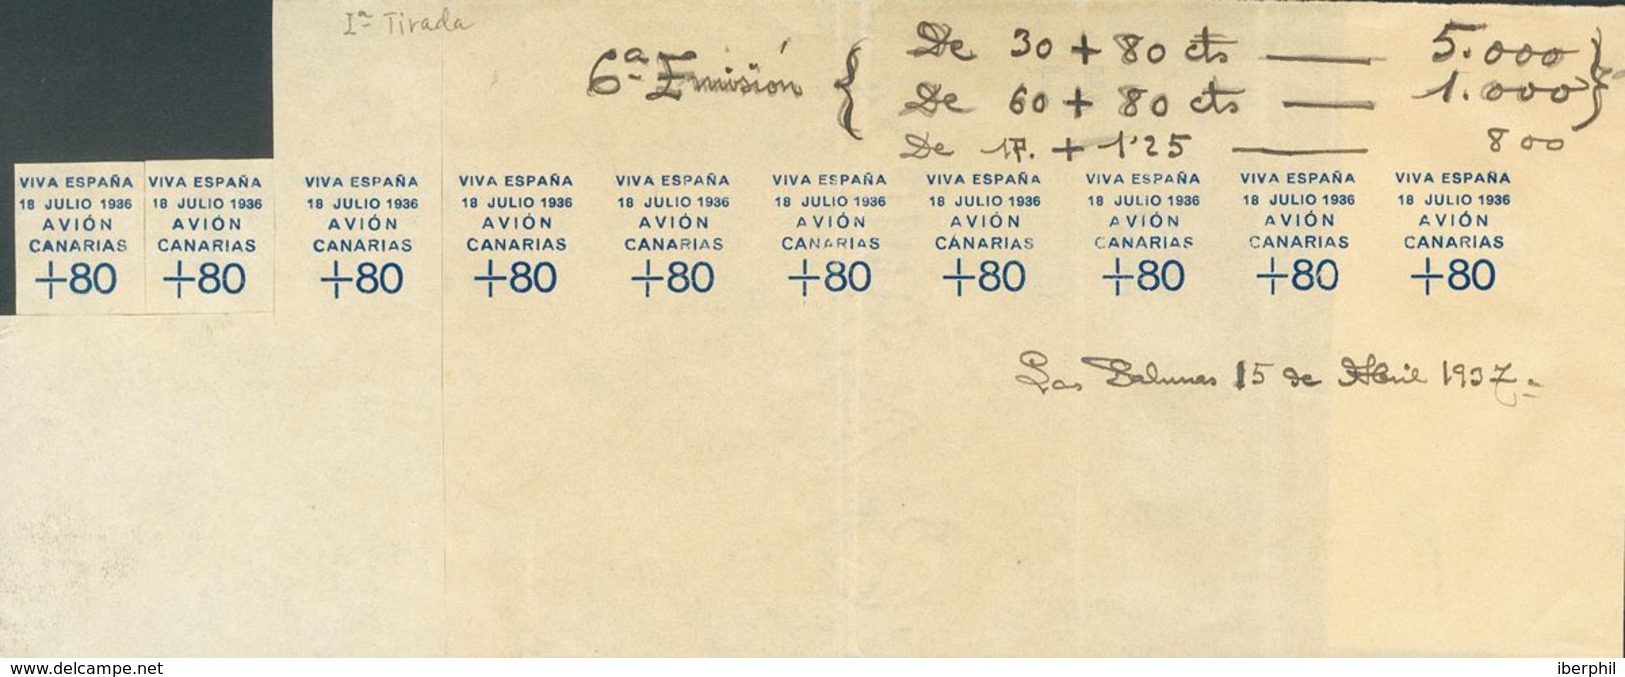 Iª Tirada
6ª Emisión { De 30 + 80 cts — 5.000 }
De 60 + 80 cts — 1.000
De 1P. + 1'25 — 800
VIVA ESPAÑA VIVA ESPAÑA VIVA ESPAÑA VIVA ESPAÑA VIVA ESPAÑA VIVA ESPAÑA VIVA ESPAÑA VIVA ESPAÑA VIVA ESPAÑA VIVA ESPAÑA
18 JULIO 1936 18 JULIO 1936 18 JULIO 1936 18 JULIO 1936 18 JULIO 1936 18 JULIO 1936 18 JULIO 1936 18 JULIO 1936 18 JULIO 1936 18 JULIO 1936
AVIÓN AVIÓN AVIÓN AVIÓN AVIÓN AVIÓN AVIÓN AVIÓN AVIÓN AVIÓN
CANARIAS CANARIAS CANARIAS CANARIAS CANARIAS CANARIAS CANARIAS CANARIAS CANARIAS CANARIAS
+80 +80 +80 +80 +80 +80 +80 +80 +80 +80
Las Palmas 15 de Abril 1937.=
www.delcampe.net iberphil